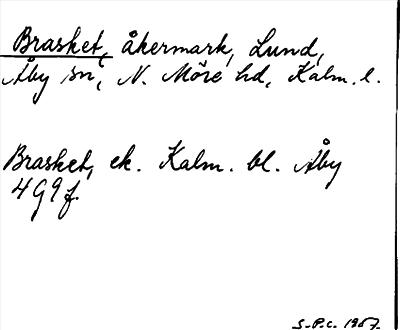 Brasket, åkermark, Lund,
Åby sn, N. Möre hd, Kalm. l.
Brasket, ek. Kalm. bl. Åby
4 G 9 f.
S.P.C. 1967.